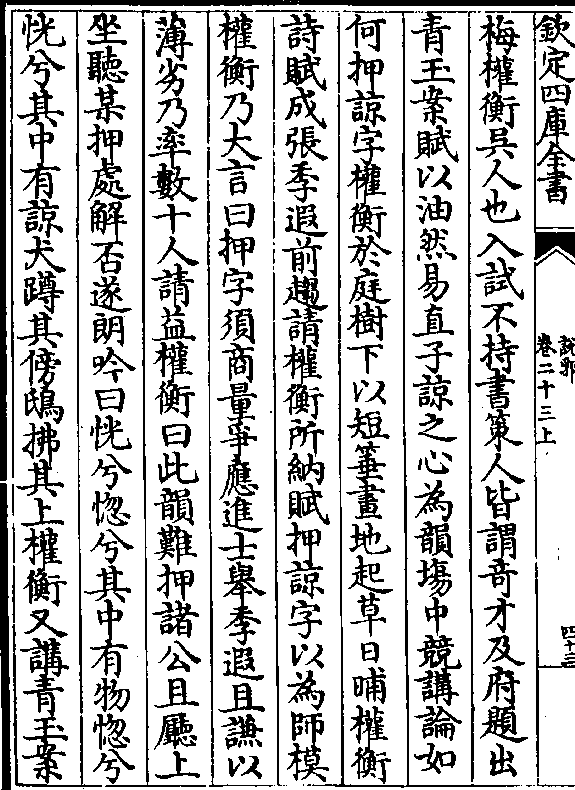 欽定四庫全書
說郛
卷二十三上
四十三
梅權衡吳人也入試不持書策人皆謂竒才及府題出
青玉案賦以油然易直子諒之心為韻塲中競講論如
何押諒字權衡於庭樹下以短箠畫地起草日晡權衡
詩賦成張季遐前趨請權衡所納賦押諒字以為師模
權衡乃大言曰押字須商量爭應進士舉季遐且謙以
薄劣乃率數十人請益權衡曰此韻難押諸公且廳上
坐聽某押處解否遂朗吟曰恍兮惚兮其中有物惚兮
恍兮其中有諒犬蹲其傍鴟拂其上權衡又講青玉案